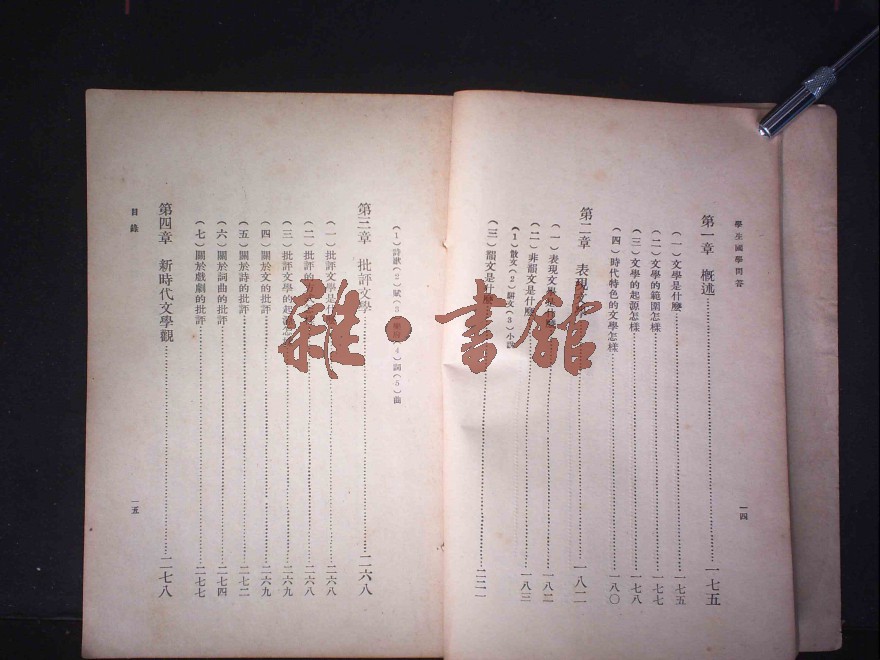 學生國學問答
第一章 概述……一七五
(一)文學是什麼……一七五
(二)文學的範圍怎樣……一七七
(三)文學的起源怎樣……一七八
(四)時代特色的文學怎樣……一八〇
第二章 表現文學……一八二
(一)表現文學是什麼……一八二
(二)非韻文是什麼……一八三
(1)散文(2)駢文(3)小說
(三)韻文是什麼……二二一
一四
(1)詩歌(2)賦(3)樂府(4)詞(5)曲
第三章 批評文學……二六八
(一)批評文學是什麼……二六八
(二)批評的……二六八
(三)批評文學的起源怎樣……二六九
(四)關於文的批評……二六九
(五)關於詩的批評……二七二
(六)關於詞曲的批評……二七四
(七)關於戲劇的批評……二七七
第四章 新時代文學觀……二七八
目錄
一五
雜·書館